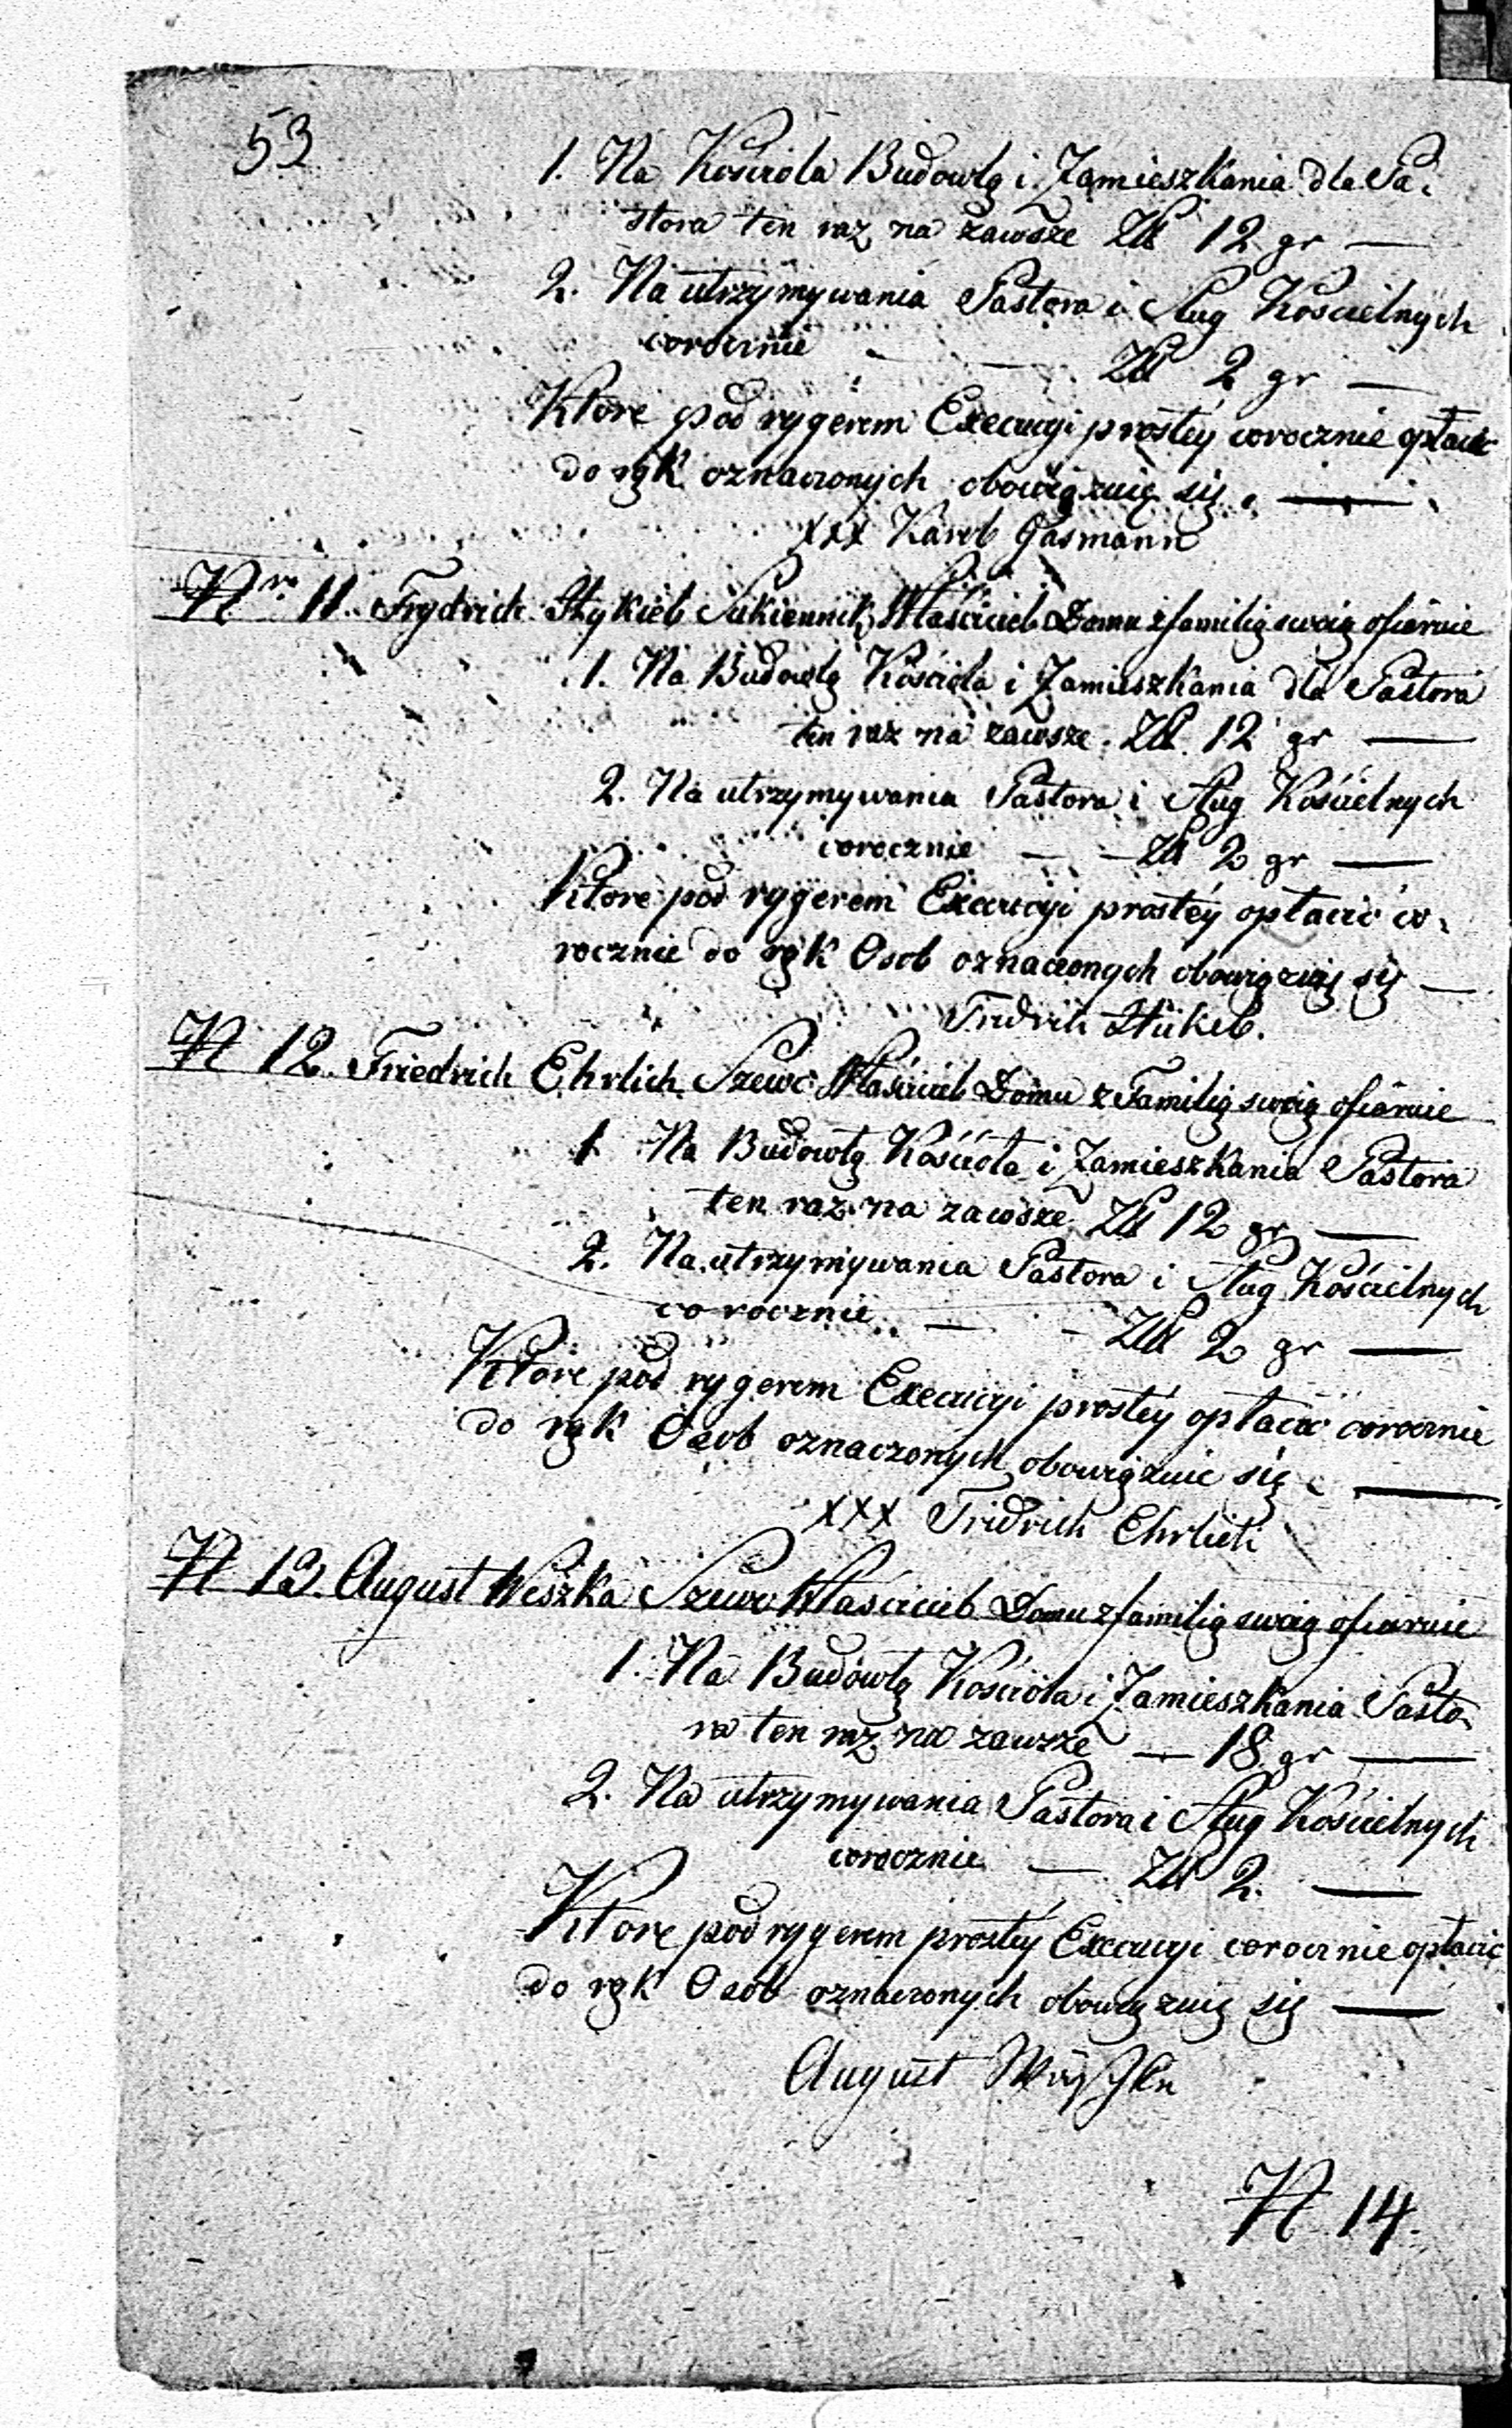 53
1. Na Kościoła Budowlą i Zamieszkania dla Pa-
stora ten raz na zawsze Zł 12 gr —
2. Na utrzymywania Pastora i Sług Kościelnych
corocznie — — Zł 2 gr —
Ktore pod rygerem Execucyi prostey corocznie opłacić
do rąk oznaczonych obowiązuię się. —
XXX Karol Gasmann
Nro 11. Frydrich Sukiennik Właściciel Domu z familią swoią ofiaruie
1. Na Budowlą Kościoła i Zamieszkania dla Pastora
ten raz na zawsze. Zł. 12 gr —
2. Na utrzymywania Pastora i Sług Kościelnych
corocznie — — Zł 2 gr —
Ktore pod rygerem Execucyi prostey opłacić co-
rocznie do rąk Osob oznaczonych obowiązuię się —
Fridrich
N 12. Friedrich Ehrlich Szewc Właściciel Domu z Familią swoią ofiaruie
1 Na Budowlą Kościoła i Zamieszkania Pastora
ten raz na zawsze Zł 12 gr —
2. Na utrzymywania Pastora i Sług Kościelnych
corocznie — — Zł 2 gr —
Ktore pod rygerem Execucyi prostey opłacić corocznie
do rąk Osob oznaczonych obowiązuie się —
XXX Fridrich Ehrlich
N 13. August Weszka Szewc Właściciel Domu z familią swoią ofiaruie
1. Na Budowlą Kościoła i Zamieszkania Pasto-
ra ten raz na zawsze — 18 gr —
2. Na utrzymywania Pastora i Sług Kościelnych
corocznie — Zł 2. —
Ktore pod rygerem prostey Execucyi corocznie opłacić
do rąk Osob oznaczonych obowiązuię się —
August
N 14.